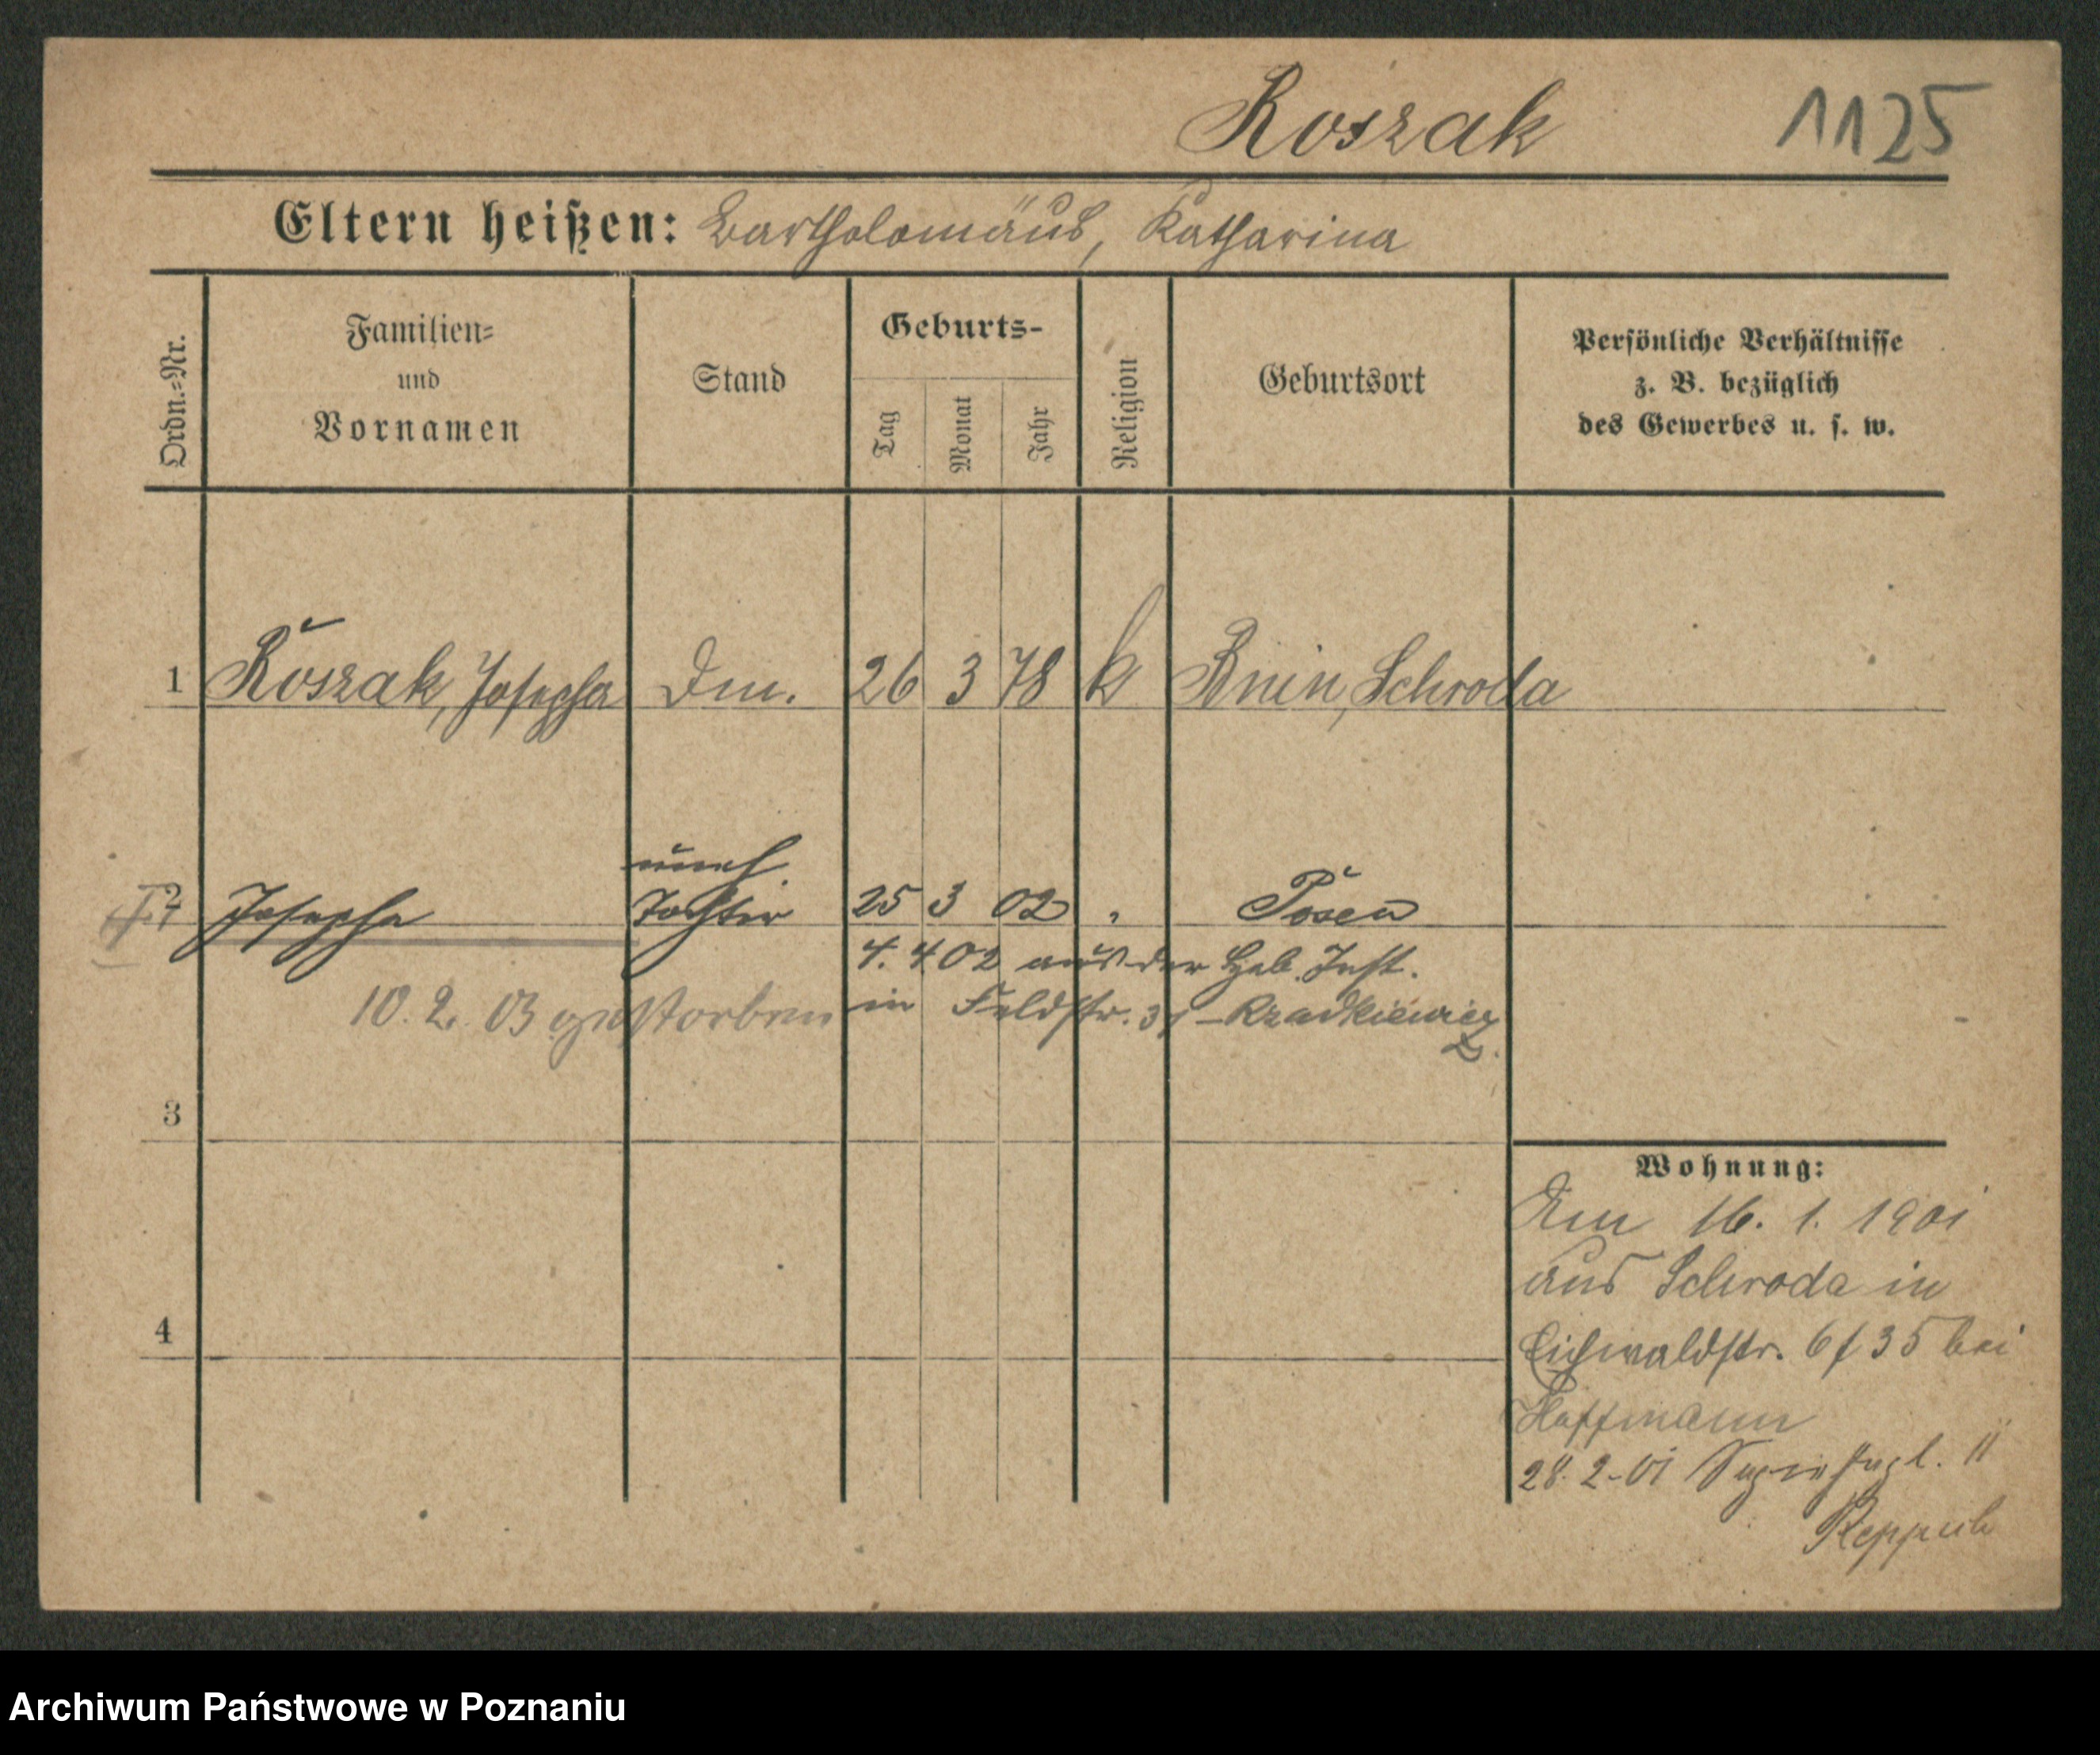 Koszak 1125
Eltern heißen: Bartholomäus, Katharina
Ordn.=Nr.
Familien=
und
Vornamen
Stand
Geburts-
Tag
Monat
Jahr
Religion
Geburtsort
Persönliche Verhältnisse
z. B. bezüglich
des Gewerbes u. s. w.
1 Koszak, Josepha 26 3 78 k Bnin, Schroda
uneh.
2 Josepha Tochter 25 3 02 " Posen
4. 4 02 aus der Heb. Inst.
10. 2. 03 gestorben in Feldstr. 31 - Rzadkiewicz
3
4
Wohnung:
Am 16. 1. 1901
aus Schroda in
Eichwaldstr. 6/35 bei
Hoffmann
28. 2. 01 11
Archiwum Państwowe w Poznaniu